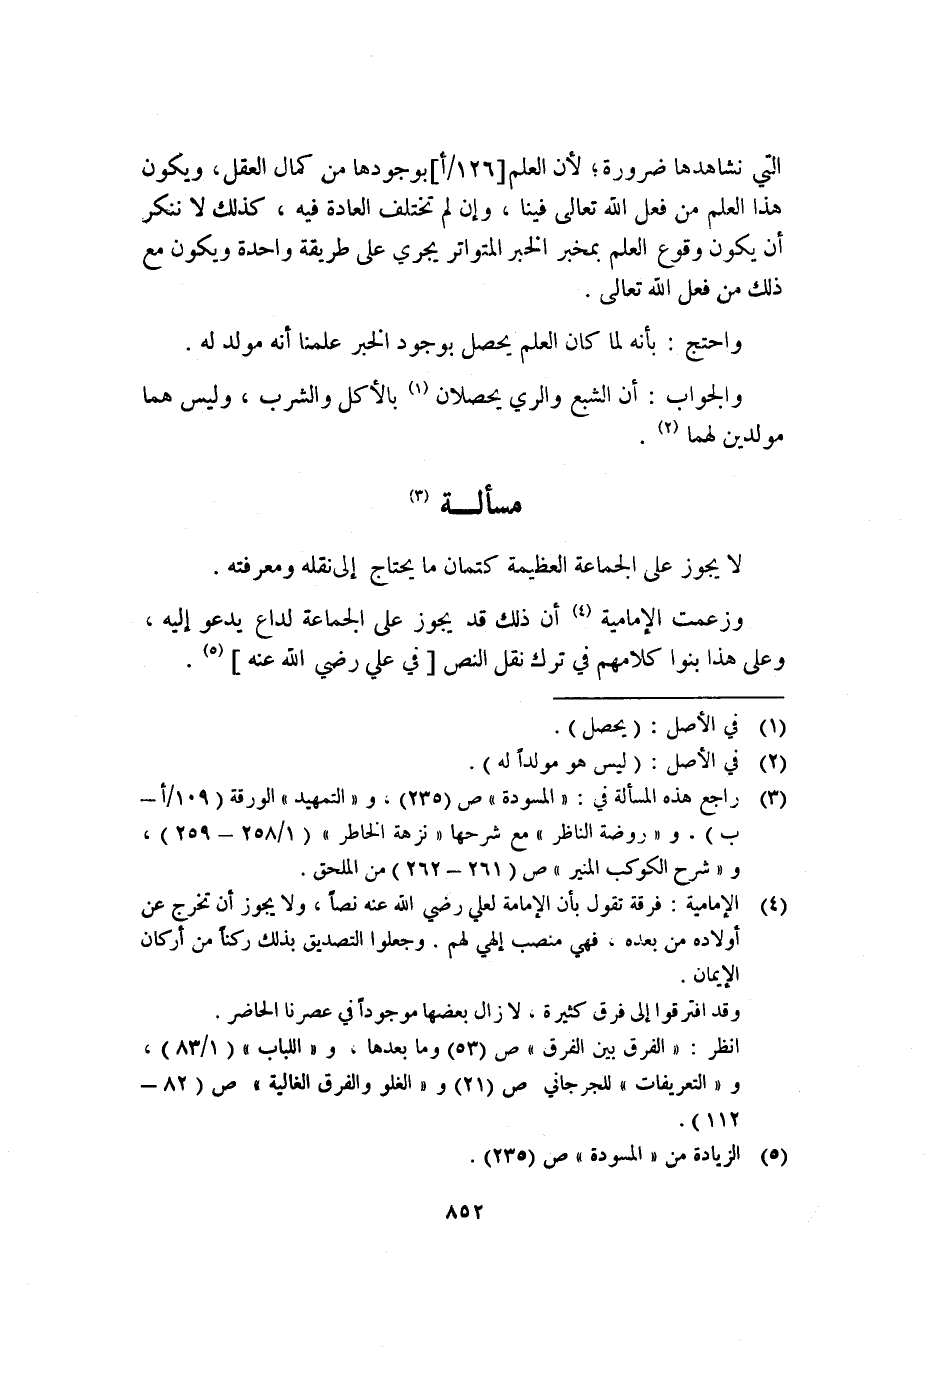 التي نشاهدها ضرورة؛ لأن العلم[١٢٦/أ]بوجودها من كمال العقل، ويكون
هذا العلم من فعل الله تعالى فينا ، وإن لم تختلف العادة فيه ، كذلك لا ننكر
أن يكون وقوع العلم بمخبر الخبر المتواتر يجري على طريقة واحدة ويكون مع
ذلك من فعل الله تعالى .
واحتج : بأنه لما كان العلم يحصل بوجود الخبر علمنا أنه مولد له .
والجواب : أن الشبع والري يحصلان (١) بالأكل والشرب ، وليس هما
مولدين لهما (٢) .
مسألـــة (٣)
لا يجوز على الجماعة العظيمة كتمان ما يحتاج إلى نقله ومعرفته .
وزعمت الإمامية (٤) أن ذلك قد يجوز على الجماعة لداع يدعو إليه ،
وعلى هذا بنوا كلامهم في ترك نقل النص [ في علي رضي الله عنه ] (٥) .
(١) في الأصل : ( يحصل ) .
(٢) في الأصل : ( ليس هو مولداً له ) .
(٣) راجع هذه المسألة في : « المسودة » ص (٢٣٥) ، و « التمهيد » الورقة ( ١٠٩/أ –
ب ) . و « روضة الناظر » مع شرحها « نزهة الخاطر » ( ٢٥٨/١ – ٢٥٩ ) ،
و « شرح الكوكب المنير » ص ( ٢٦١ – ٢٦٢ ) من الملحق .
(٤) الإمامية : فرقة تقول بأن الإمامة لعلي رضي الله عنه نصاً ، ولا يجوز أن تخرج عن
أولاده من بعده ، فهي منصب إلهي لهم . وجعلوا التصديق بذلك ركناً من أركان
الإيمان .
وقد افترقوا إلى فرق كثيرة ، لا زال بعضها موجوداً في عصرنا الحاضر .
انظر : « الفرق بين الفرق » ص (٥٣) وما بعدها ، و « اللباب » ( ٨٣/١ ) ،
و « التعريفات » للجرجاني ص (٢١) و « الغلو والفرق الغالية » ص ( ٨٢ –
١١٢ ) .
(٥) الزيادة من « المسودة » ص (٢٣٥) .
٨٥٢